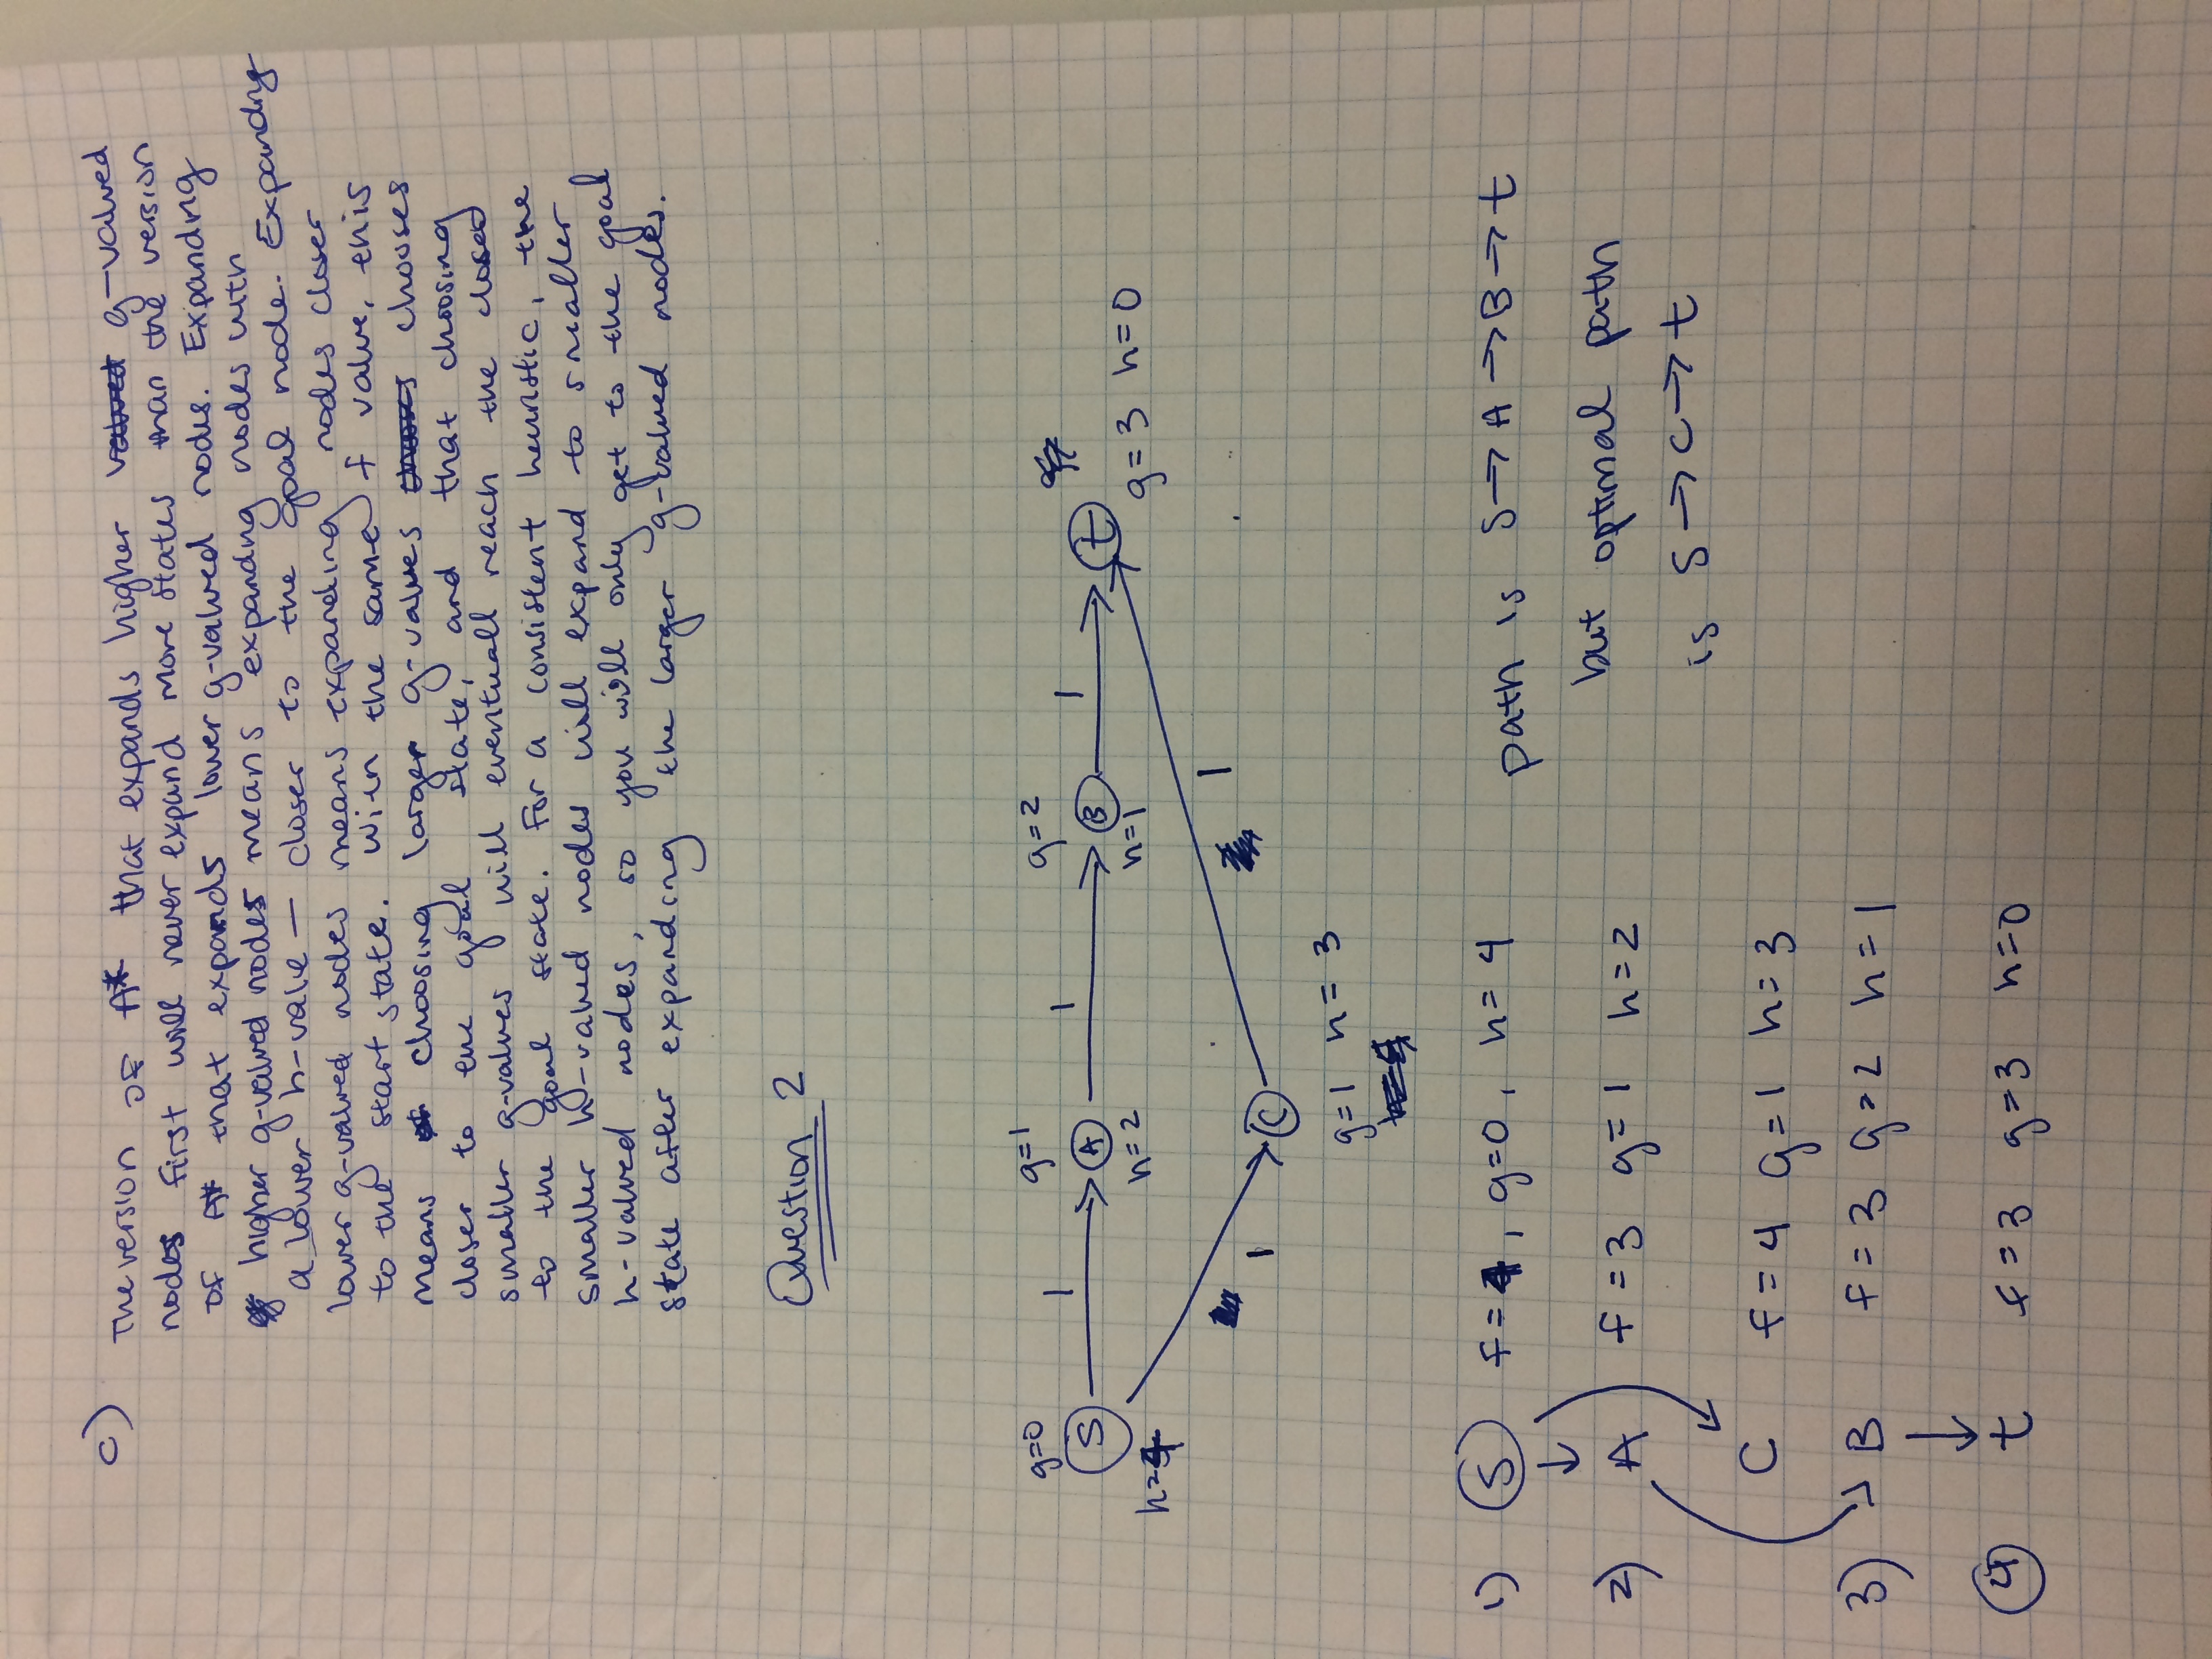 c) The version of A* that expands higher valued g-valued
nodes first will never expand more states than the version
of A* that expands lower g-valued nodes. Expanding
higher g-valued nodes means expanding nodes with
a lower h-value — closer to the goal node. Expanding
lower g-valued nodes means expanding nodes closer
to the start state. With the same f value, this
means choosing larger g-values chooses chooses
closer to the goal state, and that choosing
smaller g-values will eventuall reach the closed
to the goal state. For a consistent heuristic, the
smaller h-valued nodes will expand to smaller
h-valued nodes, so you will only get to the goal
state after expanding the larger g-valued nodes.
Question 2
g=0 g=1 g=2
1 1 1
S A B t
h=4 h=2 h=1 g=3 h=0
1 1
C
g=1 h=3
1) S f=4, g=0, h=4 path is S→A→B→t
2) A f=3 g=1 h=2 but optimal path
is S→C→t
C f=4 g=1 h=3
3) B f=3 g=2 h=1
4 t f=3 g=3 h=0